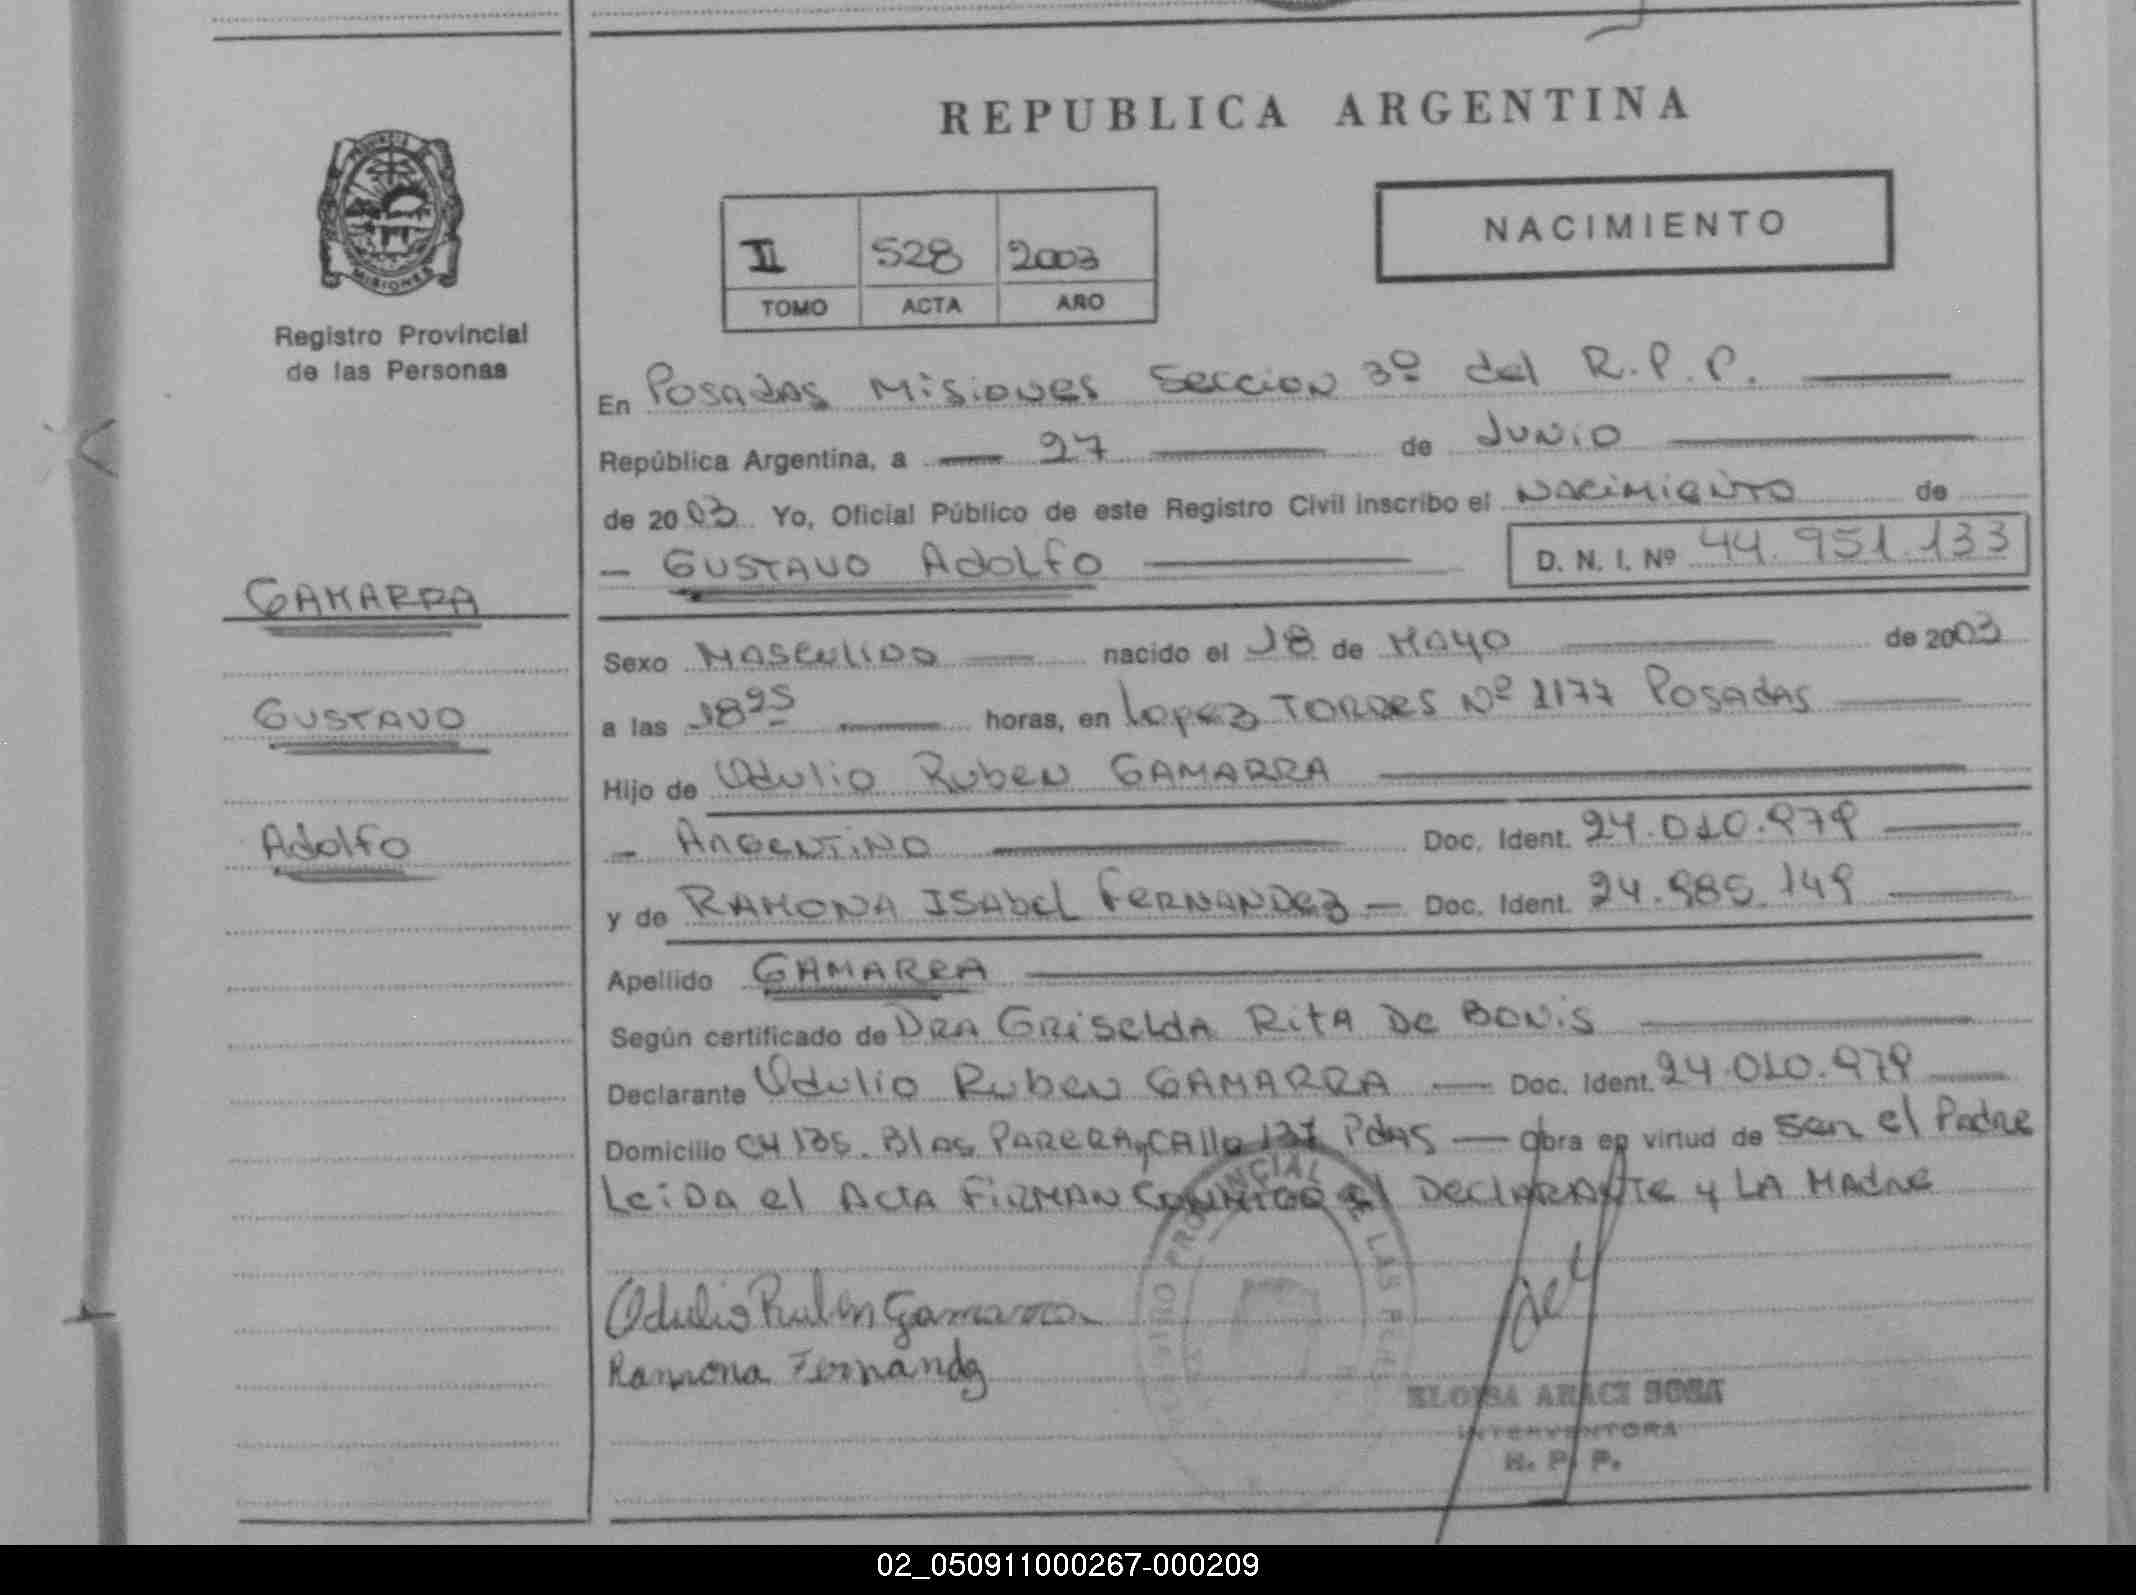 REPUBLICA ARGENTINA
NACIMIENTO
II 528 2003
TOMO ACTA AÑO
PROVINCIA DE
MISIONES
Registro Provincial
de las Personas
En Posadas Misiones Seccion 3º del R.P.P.
República Argentina, a 27 de Junio
de 2003 Yo, Oficial Público de este Registro Civil inscribo el Nacimiento de
Gustavo Adolfo D. N. I. Nº 44.951.133
GAMARRA
Gustavo
Adolfo
Sexo Masculino nacido el 18 de Mayo de 2003
a las 18 25 horas, en Lopez Torres Nº 1177 Posadas
Hijo de Odulio Ruben GAMARRA
Argentino Doc. Ident. 24.010.979
y de RAMONA ISAbel FERNANDEZ Doc. Ident. 24.985.149
Apellido GAMARRA
Según certificado de DRA Griselda Rita De Bonis
Declarante Odulio Ruben GAMARRA Doc. Ident. 24.010.979
Domicilio CH 135. Blas PARERA, CAlle 137 Pdas Obra en virtud de ser el Padre
Leida el Acta Firman conmigo el Declarante y LA MADRE
Odulio Ruben Gamarra
Ramona Fernandez
REGISTRO PROVINCIAL DE LAS
ELOISA ARACI SOSA
INTERVENTORA
R. P. P.
02_050911000267-000209